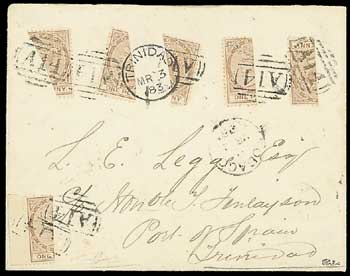 A14
A14
TRINIDAD
MR 3
83
A14
A14
L. E. Legge Esq
c/o Honble T. Finlayson
Port of Spain
Trinidad
A14
ONE